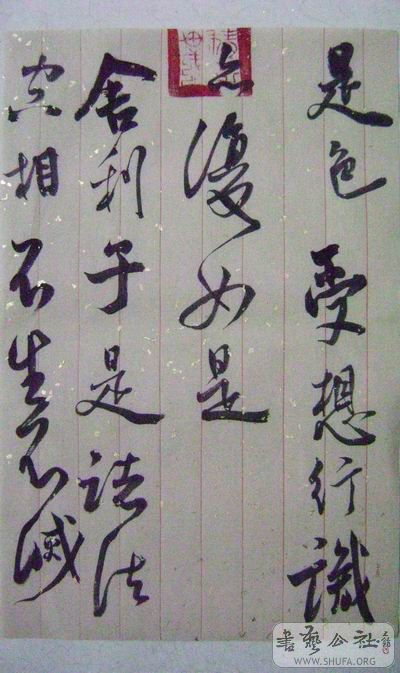 是色 受想行識
亦復如是
舍利子是諸法
空相不生不滅
書藝公社
WWW.SHUFA.ORG